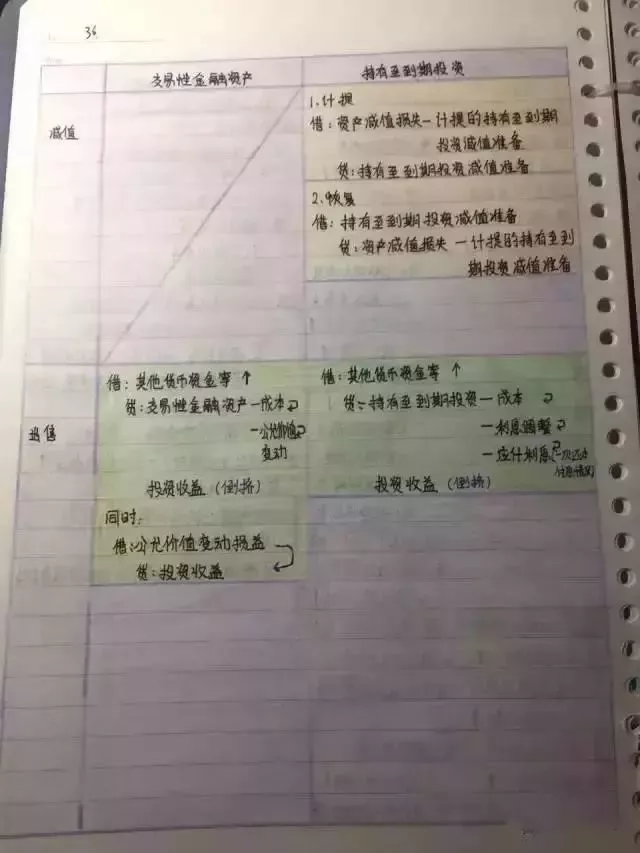 36
交易性金融资产
持有至到期投资
减值
1.计提
借:资产减值损失—计提的持有至到期
投资减值准备
贷:持有至到期投资减值准备
2.恢复
借:持有至到期投资减值准备
贷:资产减值损失—计提的持有至到
期投资减值准备
出售
借:其他货币资金等↑
贷:交易性金融资产—成本
—公允价值
变动
投资收益(倒挤)
同时:
借:公允价值变动损益
贷:投资收益
借:其他货币资金等↑
贷:持有至到期投资—成本
—利息调整
—应计利息
投资收益(倒挤)